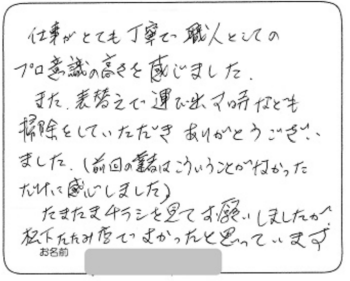 仕事がとても丁寧で職人としての
プロ意識の高さを感じました.
また.表替えで運び出す時なども
掃除をしていただきありがとうござい
ました.(前回の業者はこういうことがなかった
だけに感心しました)
たまたまチラシを見てお願いしましたが
松下たたみ店でよかったと思っています
お名前